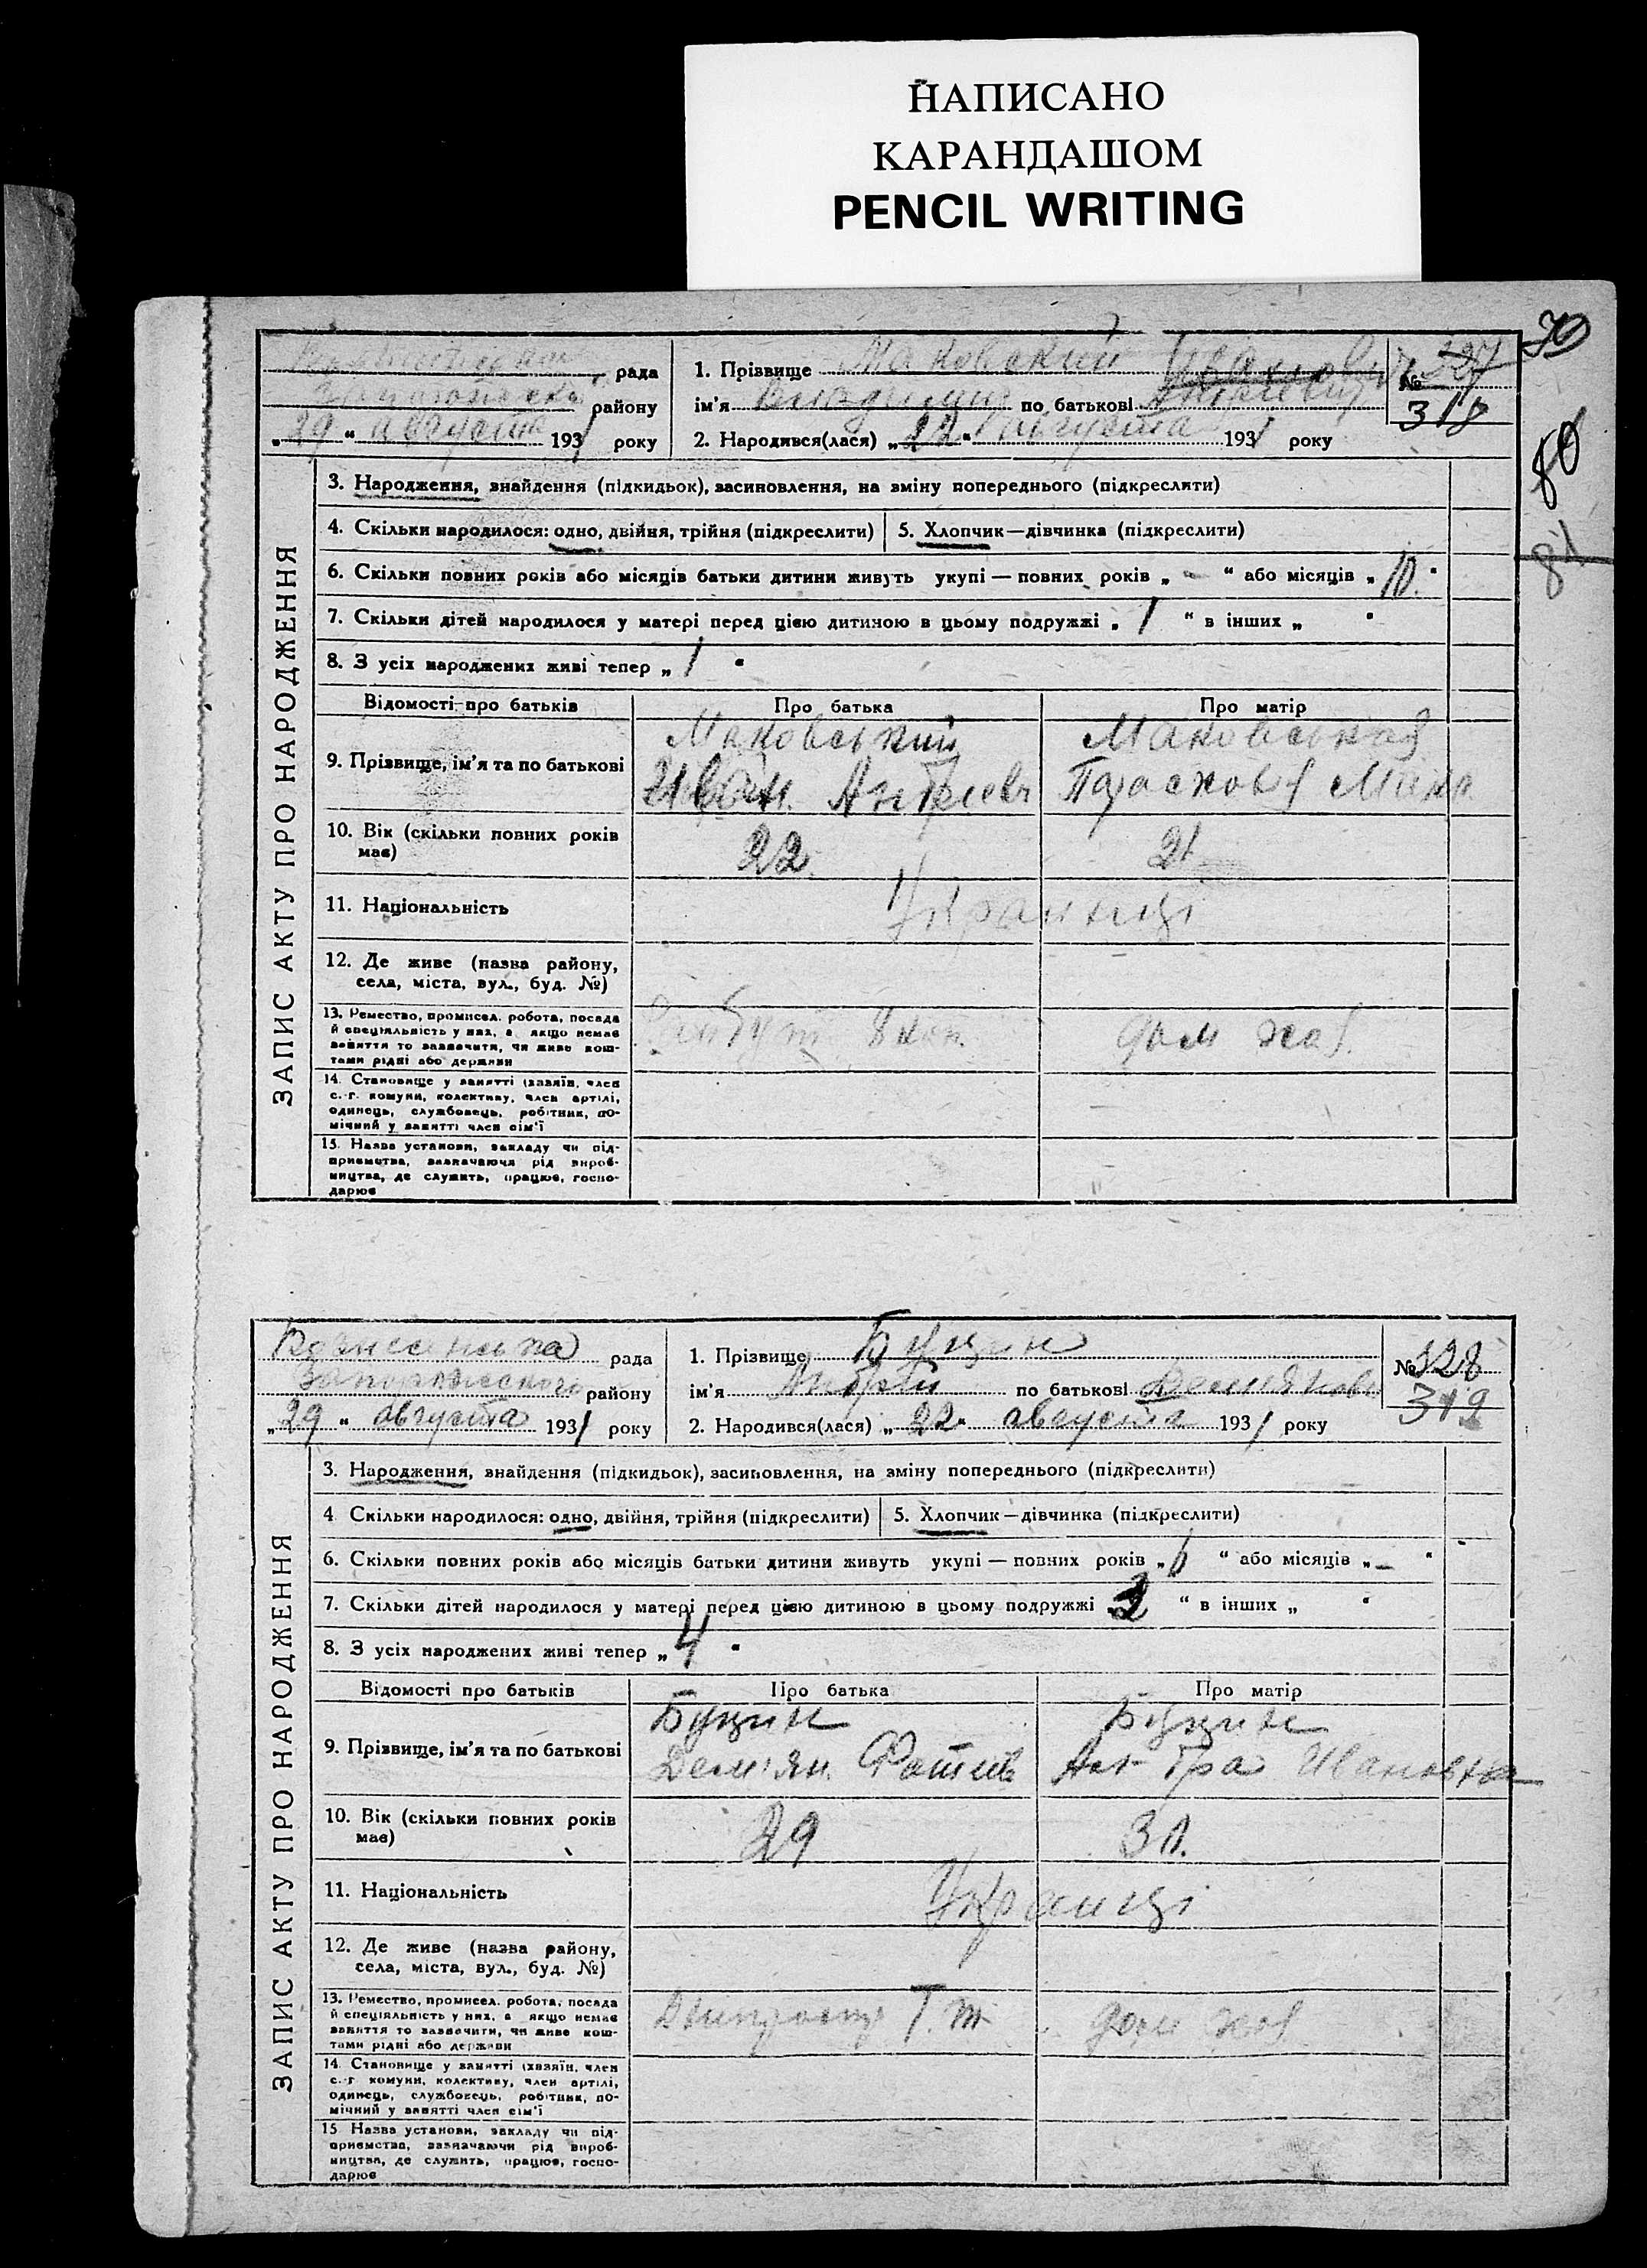 НАПИСАНО
КАРАНДАШОМ
PENCIL WRITING
70
80
81
рада
району
„ 29 “ августа 1931 року
1. Прізвище Маковский
ім'я Владимир по батькові
2. Народився(лася) „ 22 “ августа 1931 року
№ 327
318
ЗАПИС АКТУ ПРО НАРОДЖЕННЯ
3. Народження, знайдення (підкидьок), засиновлення, на зміну попереднього (підкреслити)
4. Скільки народилося: одно, двійня, трійня (підкреслити) 5. Хлопчик—дівчинка (підкреслити)
6. Скільки повних років або місяців батьки дитини живуть укупі — повних років „ - “ або місяців „ 10. “
7. Скільки дітей народилося у матері перед цією дитиною в цьому подружжі „ 1 “ в інших „ “
8. З усіх народжених живі тепер „ 1 “
Відомості про батьків Про батька Про матір
9. Прізвище, ім'я та по батькові
Маковський Маковськая
Иван. Андриев Парасковя
10. Вік (скільки повних років має)
22. 21
11. Національність
Українці
12. Де живе (назва району, села, міста, вул., буд. №)
13. Ремество, промисел. робота, посада й спеціяльність у них, а якщо немає заняття то зазначити, чи живе коштами рідні або держави
дом хоз.
14. Становище у занятті (хазяїн, член с.-г. комуни, колективу, член артілі, одинець, службовець, робітник, помічний у занятті член сім'ї
15. Назва установи, закладу чи підприємства, зазначаючи рід виробництва, де служить, працює, господарює
Вознесенська рада
Запорожского району
„ 29 “ августа 1931 року
1. Прізвище Буцин
ім'я Андрей по батькові Демянов
2. Народився(лася) „ 22 “ августа 1931 року
№ 328
319
ЗАПИС АКТУ ПРО НАРОДЖЕННЯ
3. Народження, знайдення (підкидьок), засиновлення, на зміну попереднього (підкреслити)
4. Скільки народилося: одно, двійня, трійня (підкреслити) 5. Хлопчик—дівчинка (підкреслити)
6. Скільки повних років або місяців батьки дитини живуть укупі — повних років „ 6 “ або місяців „ - “
7. Скільки дітей народилося у матері перед цією дитиною в цьому подружжі „ 3 “ в інших „ “
8. З усіх народжених живі тепер „ 4 “
Відомості про батьків Про батька Про матір
9. Прізвище, ім'я та по батькові
Буцин Буцин
Дем'ян. Фотиев Ивановна
10. Вік (скільки повних років має)
29 31.
11. Національність
Украинці
12. Де живе (назва району, села, міста, вул., буд. №)
13. Ремество, промисел. робота, посада й спеціяльність у них, а якщо немає заняття то зазначити, чи живе коштами рідні або держави
дом хоз
14. Становище у занятті (хазяїн, член с.-г. комуни, колективу, член артілі, одинець, службовець, робітник, помічний у занятті член сім'ї
15. Назва установи, закладу чи підприємства, зазначаючи рід виробництва, де служить, працює, господарює